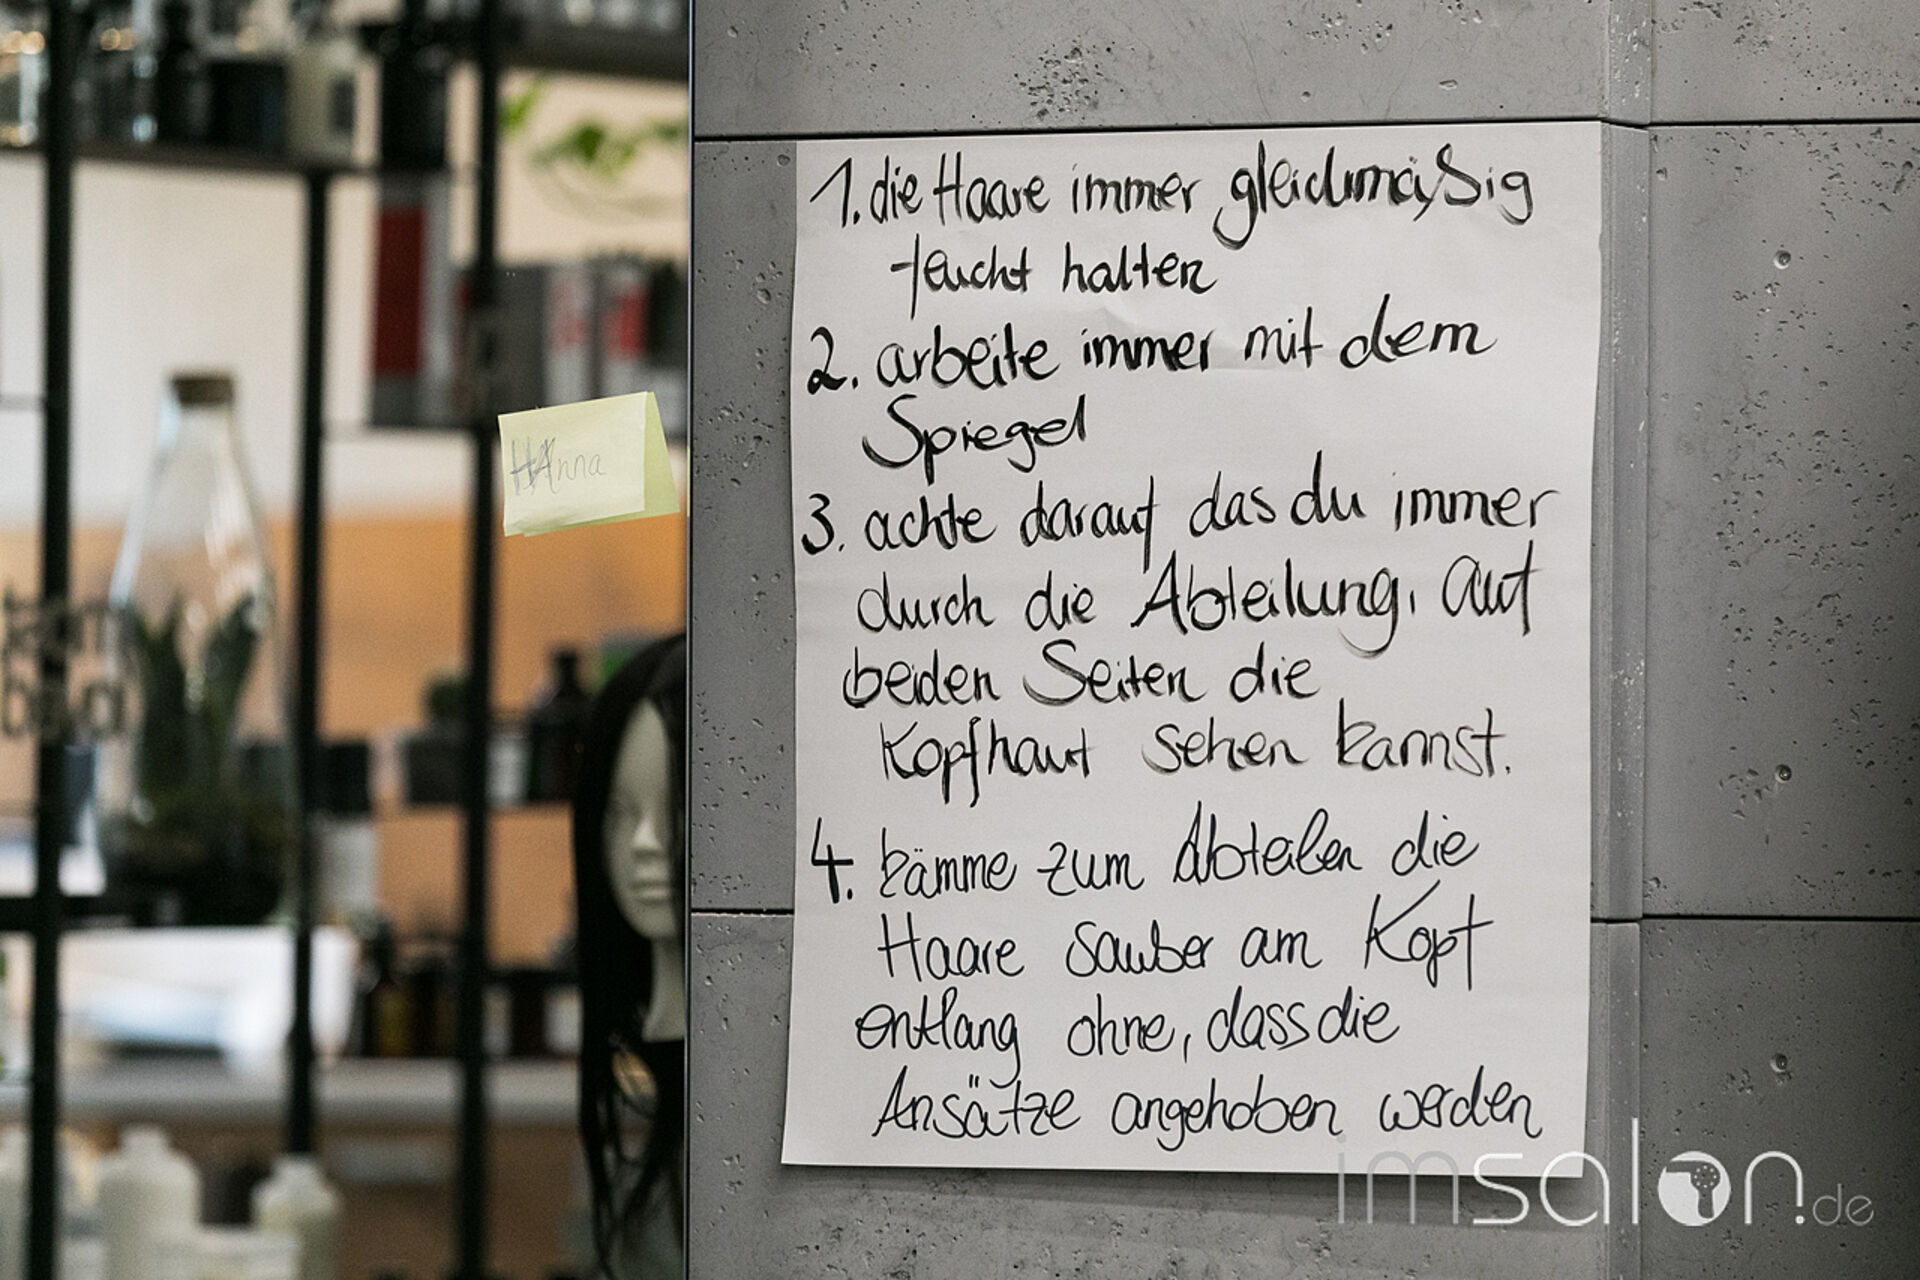 1. die Haare immer gleichmäßig
feucht halten
2. arbeite immer mit dem
Spiegel
3. achte darauf das du immer
durch die Abteilung, auf
beiden Seiten die
Kopfhaut sehen kannst.
4. kämme zum Abteilen die
Haare sauber am Kopf
entlang ohne, dass die
Ansätze angehoben werden
HAnna
imsalon.de